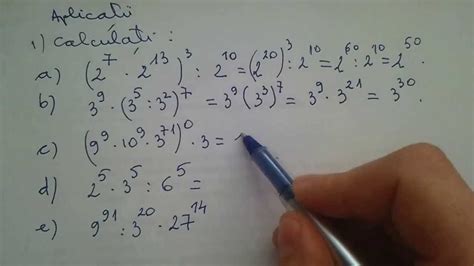 Aplicatii
1) Calculati :
a) (2⁷ · 2¹³)³ : 2¹⁰ = (2²⁰)³ : 2¹⁰ = 2⁶⁰ : 2¹⁰ = 2⁵⁰.
b) 3⁹ · (3⁵ : 3²)⁷ = 3⁹ (3³)⁷ = 3⁹ · 3²¹ = 3³⁰.
c) (9⁹ · 10⁹ · 3⁷¹)⁰ · 3 =
d) 2⁵ · 3⁵ : 6⁵ =
e) 9⁹¹ : 3²⁰ · 27¹⁴